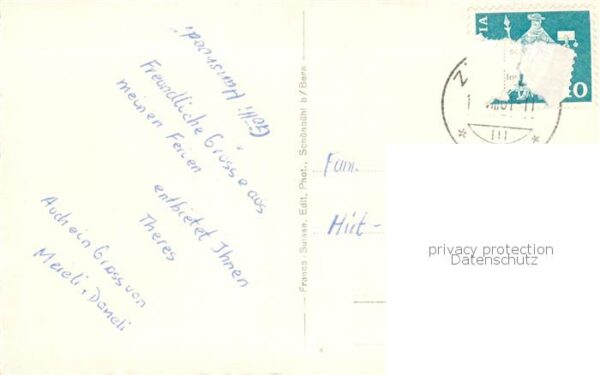 Freundliche Grüsse aus
meinen Ferien
entbietet Ihnen
Theres
Auch ein Gruss von
Meieli + Daneli
Franco Suisse, Edit. Phot., Schönbühl b/Bern
Fam.
Hüt-
VIA
10
III
privacy protection
Datenschutz